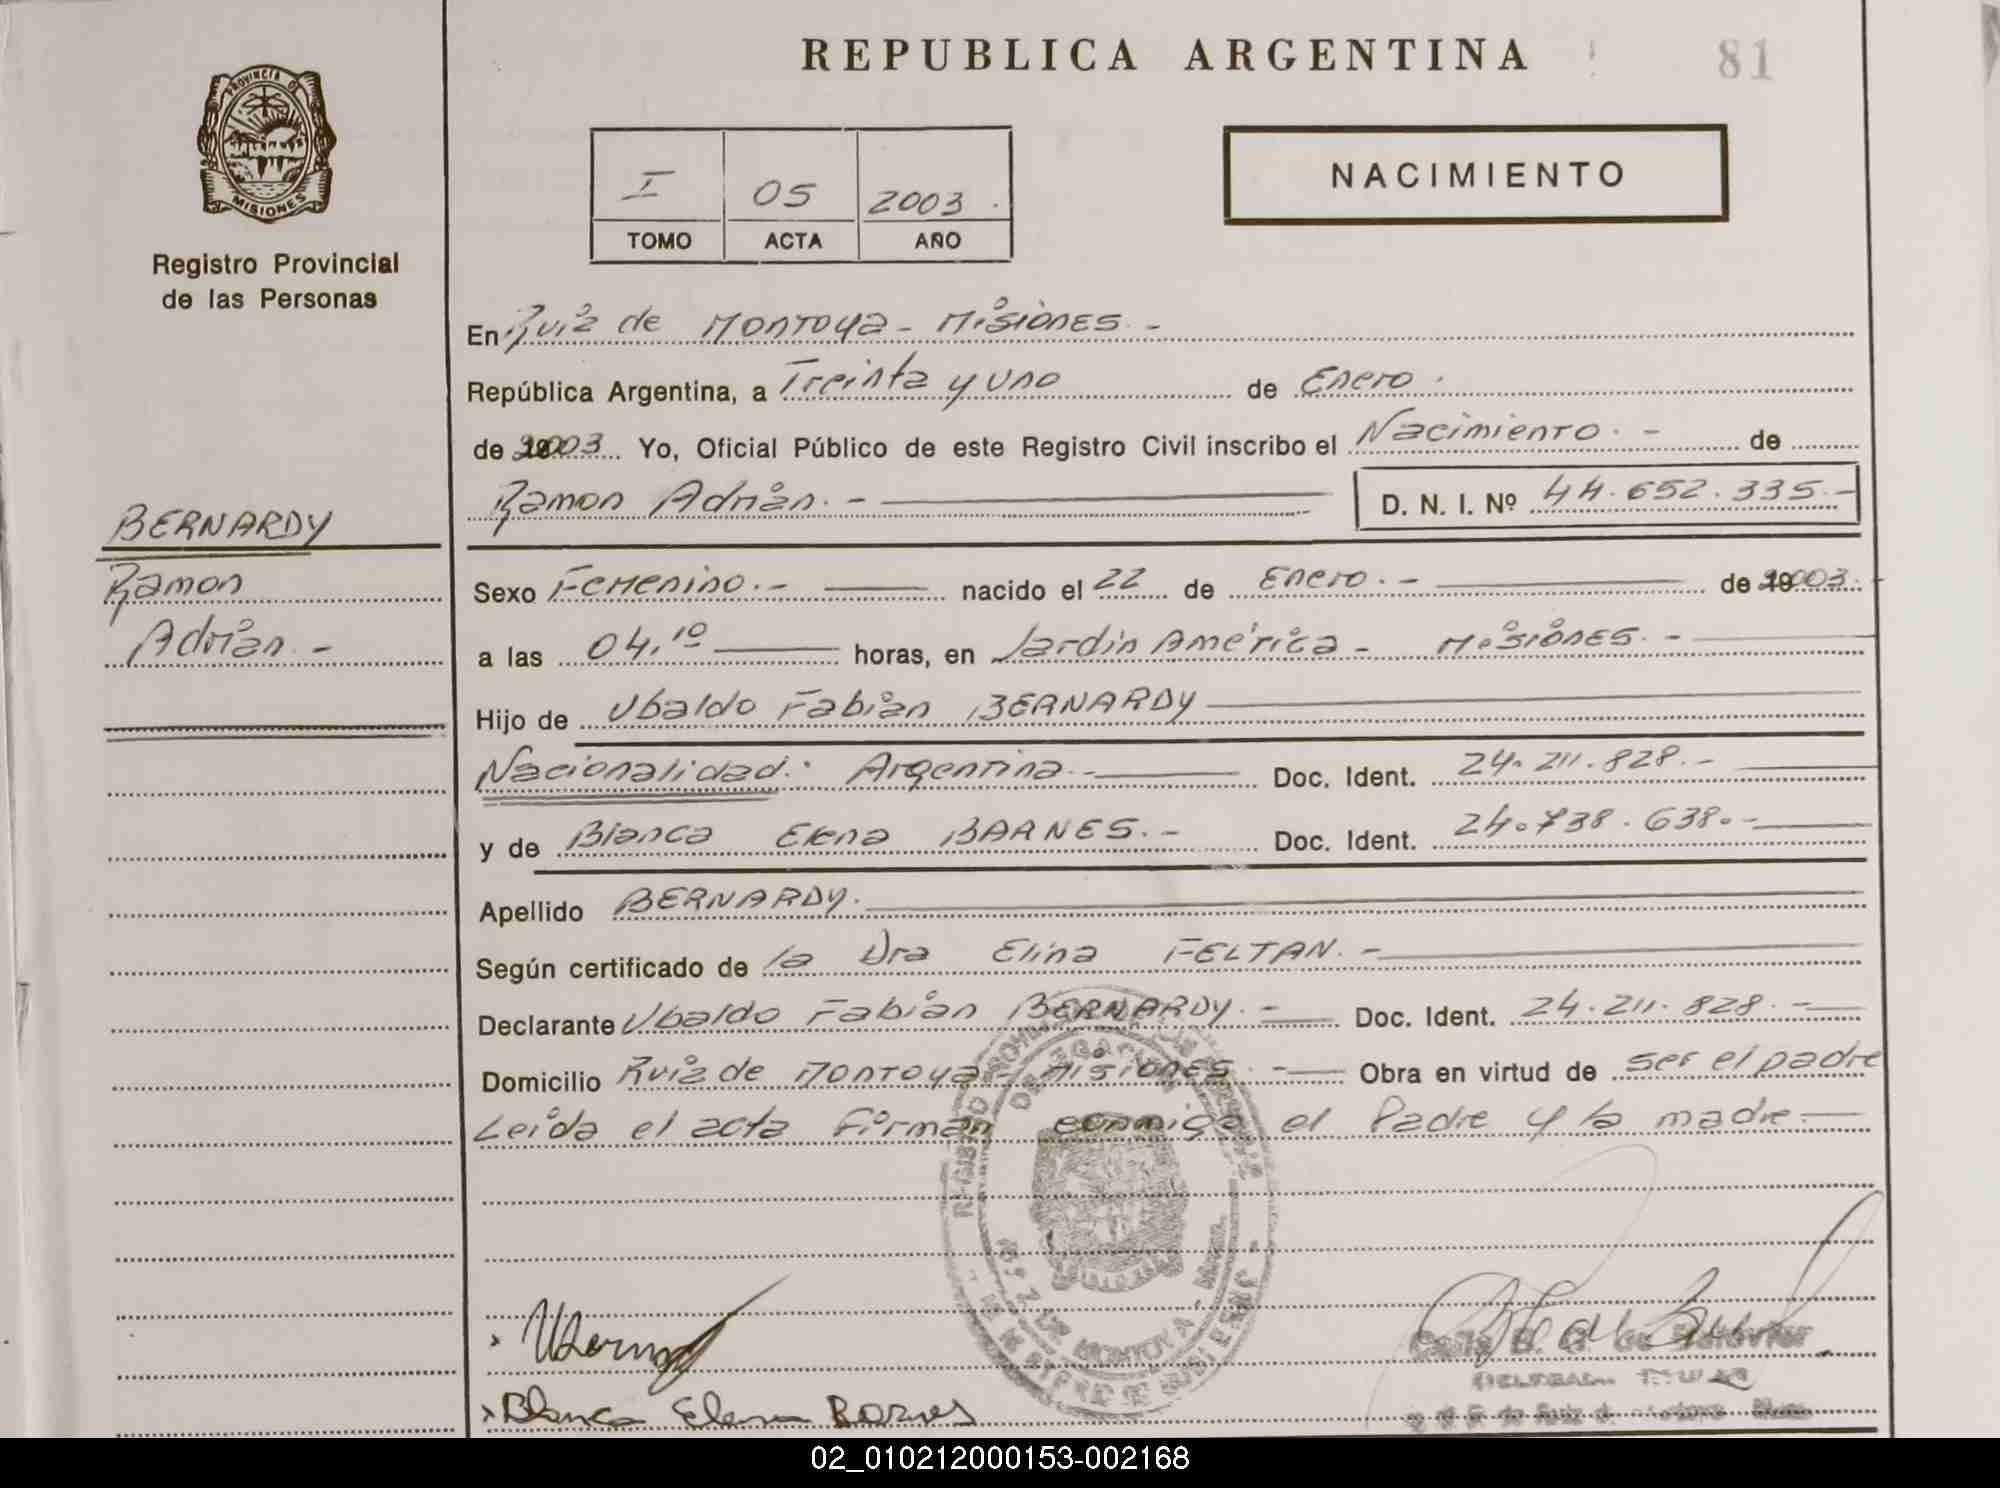 REPUBLICA ARGENTINA
81
PROVINCIA DE
MISIONES
Registro Provincial
de las Personas
I 05 2003
TOMO ACTA AÑO
NACIMIENTO
En Ruiz de Montoya - Misiones. -
República Argentina, a Treinta y uno de Enero.
de 2003 Yo, Oficial Público de este Registro Civil inscribo el Nacimiento. - de
Ramon Adrián. - D. N. I. Nº 44.652.335.-
BERNARDY
Ramon
Adrián. -
Sexo Femenino. - nacido el 22 de Enero. - de 2003.-
a las 04,10 horas, en Jardín América - Misiones. -
Hijo de Ubaldo Fabián BERNARDY
Nacionalidad: Argentina.- Doc. Ident. 24.211.828.-
y de Blanca Elena BARNES. - Doc. Ident. 24.738.638.-
Apellido BERNARDY.
Según certificado de la Dra Elina FELTAN. -
Declarante Ubaldo Fabián BERNARDY. - Doc. Ident. 24.211.828.-
Domicilio Ruiz de Montoya Misiones. - Obra en virtud de ser el padre
Leída el acta firman conmigo el Padre y la madre.-
Blanca Elena Barnes
02_010212000153-002168